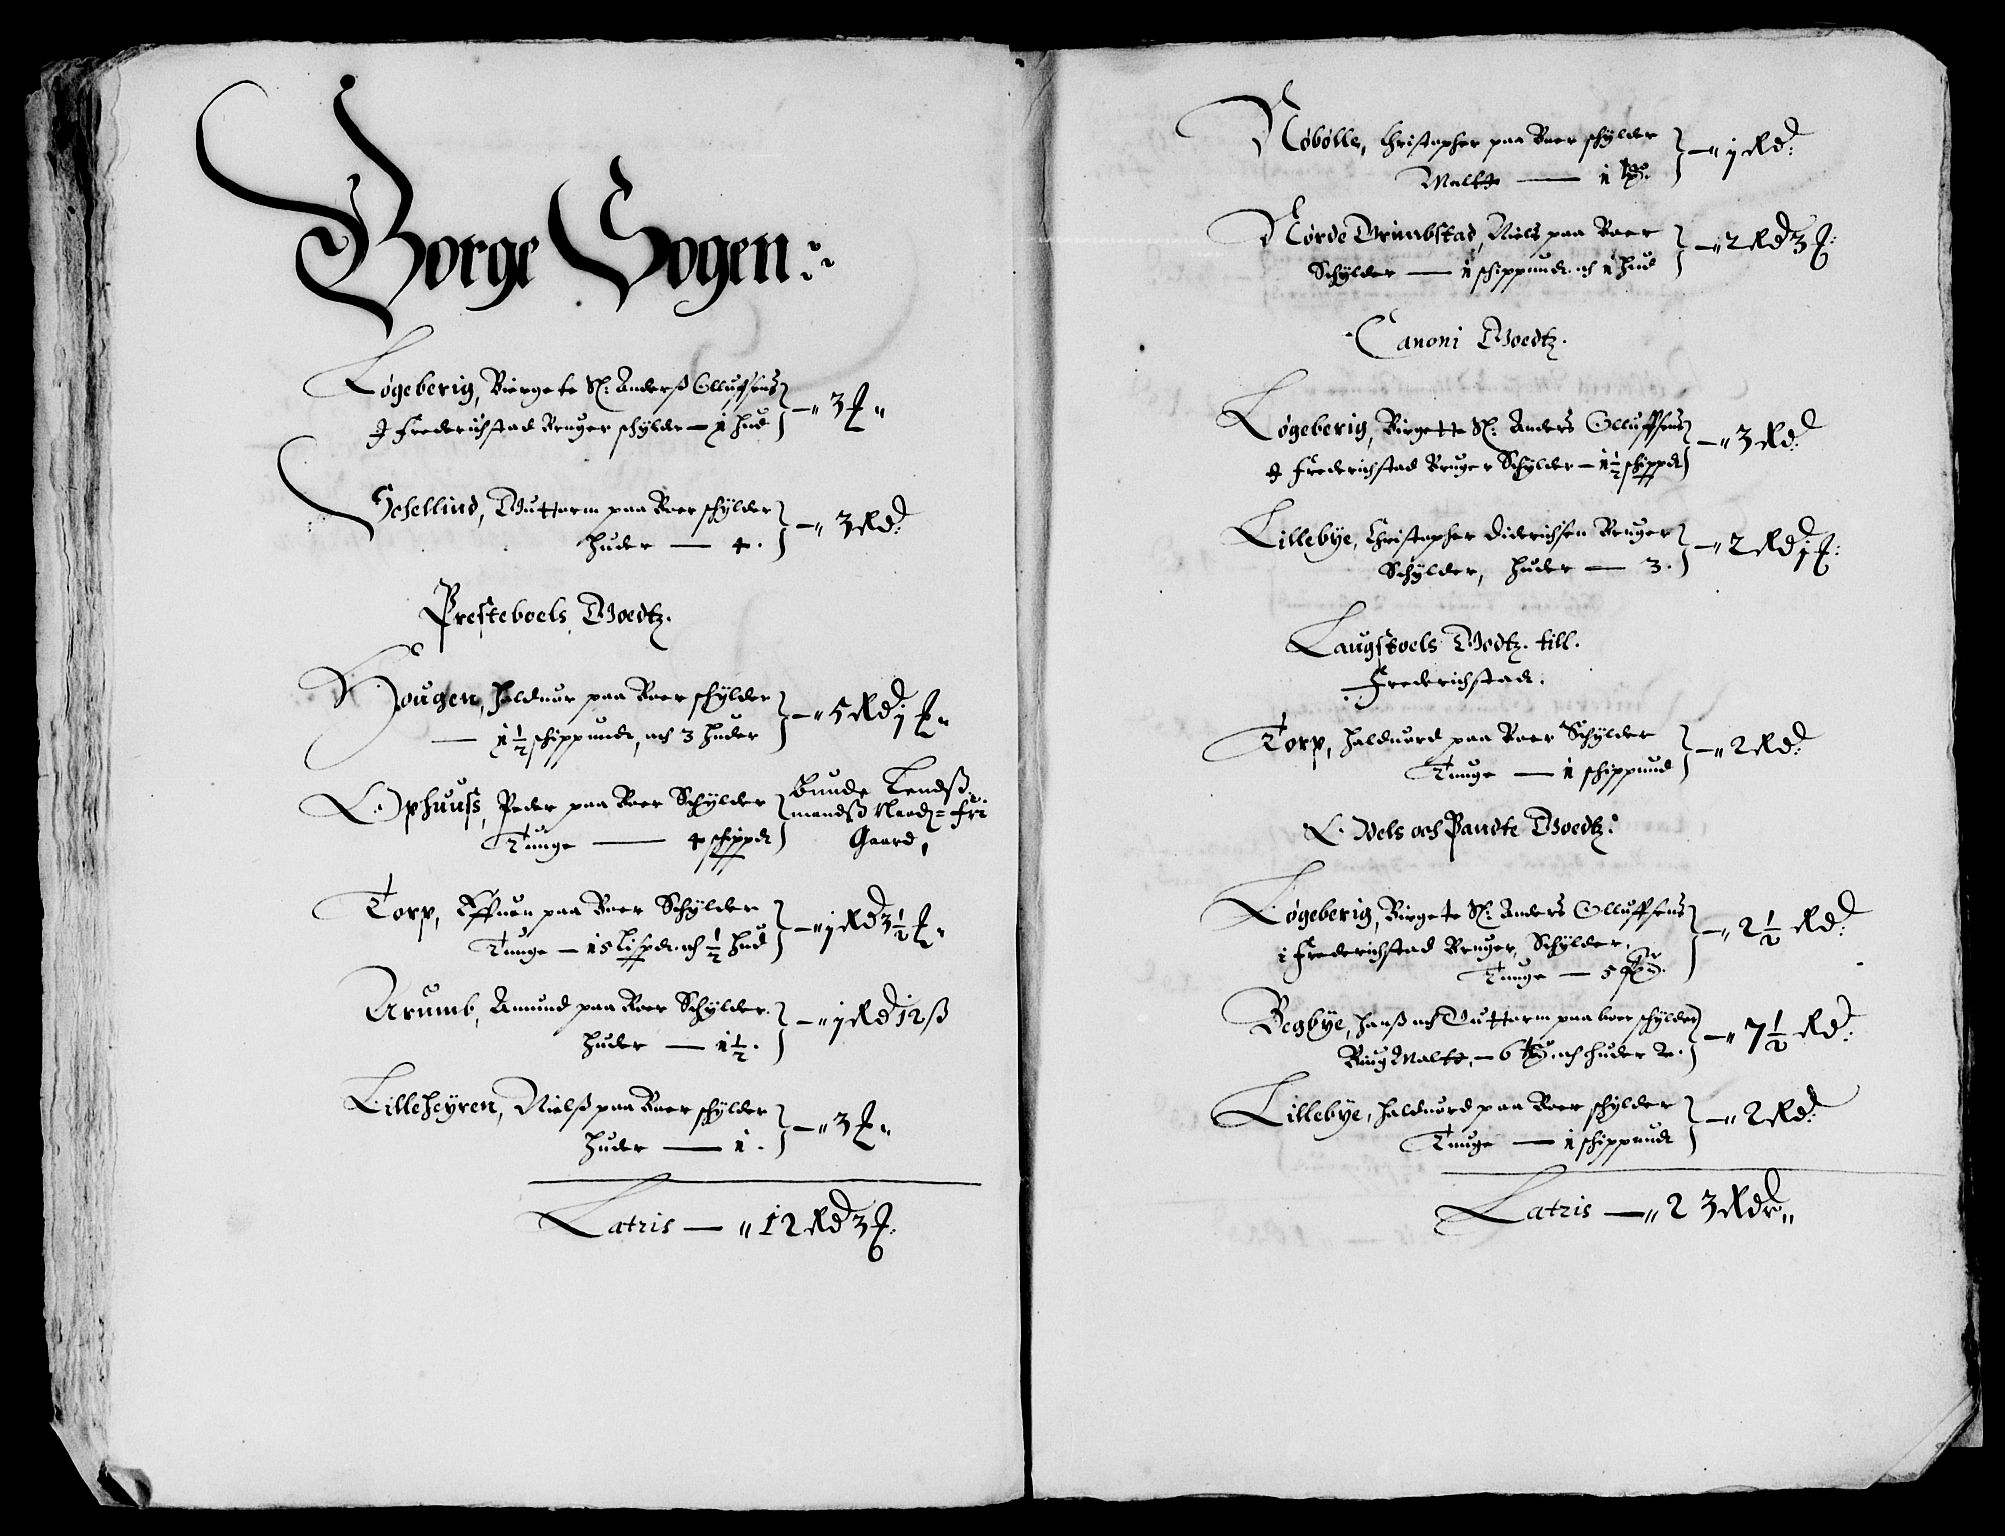 Borge Sogen:
Løgeberig, Birgete Sl: Anderß Olluffsens
J Frederichstad Bruger schylder — 1 hud — 3 ℔
Schellind, Guttorm paa Boer schylder
huder — 4. — 3 Rd:
Presteboels Goedtz.
Hougen, Halduor paa Boer schylder
— 1½ schippund, och 3 huder — 5 Rd 1 ℔
Ophuuß, Peder paa Boer Schylder
Tunge — 4 schippd
Bunde Lendß
mandß Naadz= fri
Gaard,
Torp, Effuen paa Boer Schylder
Tunge — 15 Lispd och ½ hud — 1 Rd 3½ ℔
Arumb, Amund paa Boer Schylder
huder — 1½. — 1 Rd 12 ß
Lilleheyren, Nielß paa Boer schylder
huder — 1. — 3 ℔
Latris — 12 Rd 3 ℔
Nøbølle, Christopher paa Boer schylder
Malte — 1 — 1 Rd:
Nørde Grimbstad, Niels paa Boer
Schylder — 1 schippund och 1 hud — 2 Rd 3 ℔
Canoni Goedtz.
Løgeberig, Birgette Sl: Anders Olluffsens
J Frederichstad Bruger Schylder — 1½ schippd — 3 Rd:
Lillebye, Christopher Diderichsen Bruger
Schylder, huder — 3. — 2 Rd 1 ℔
Laugstoels Godtz. till.
Frederichstad.
Torp, Halduord paa Boer Schylder
Tunge — 1 schippund — 2 Rd:
Odels och Pandte Goedtz:
Løgeberig, Birgete Sl: Anders Olluffsens
i Frederichstad Bruger, Schylder,
Tunge — 5 — 2½ Rd:
Begbye, Hanß och Guttorm paa boer schylder
Biug Malte, — 6 och huder 2. — 7½ Rd:
Lillebye, Halduord paa Boer schylder
Tunge — 1 schippund — 2 Rd:
Latris — 23 Rdr